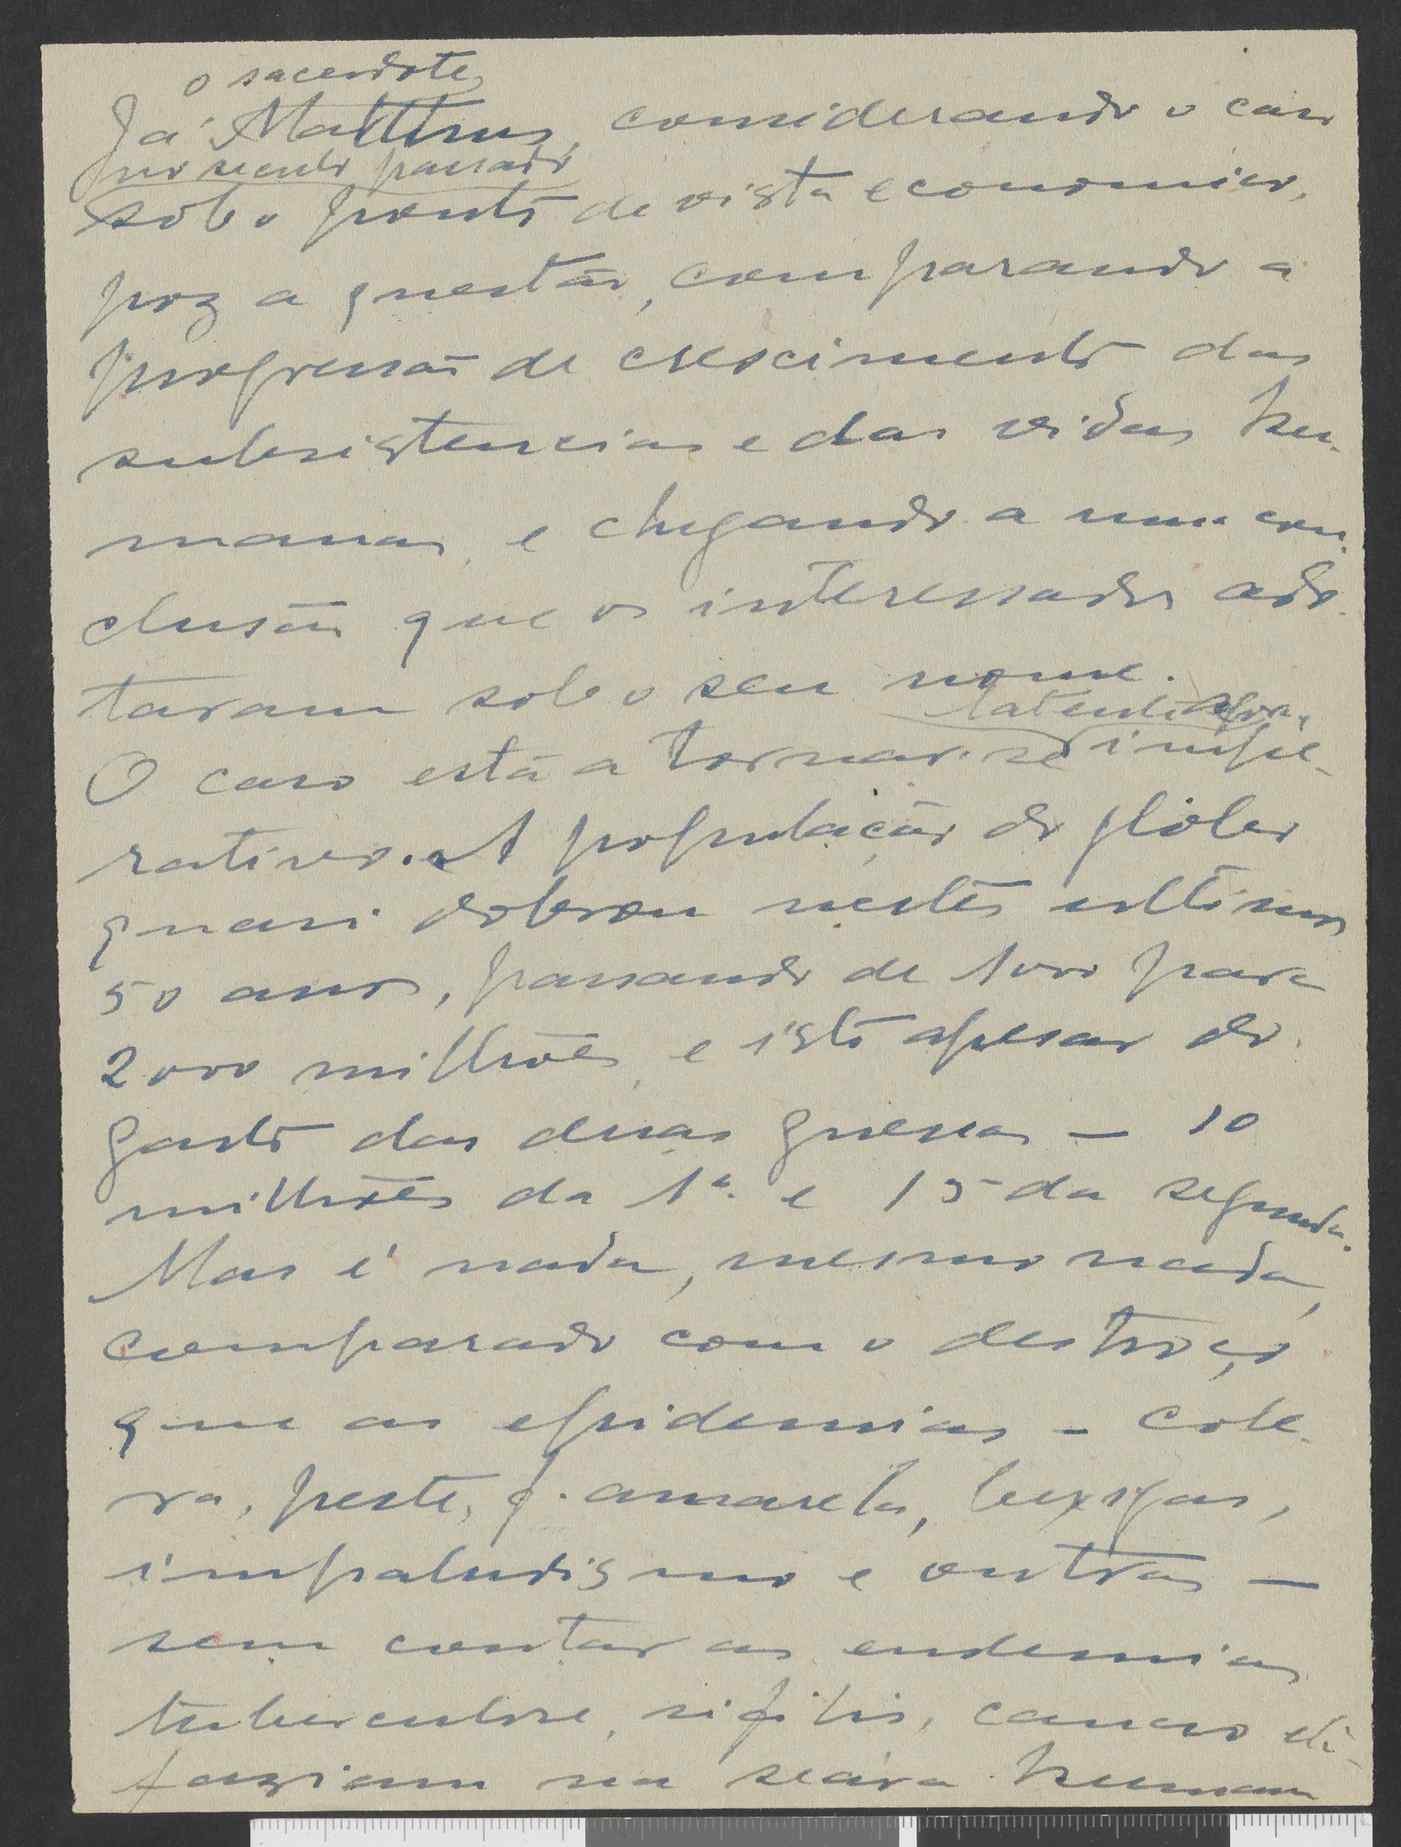 o sacerdote
Já Malthus, considerando o caso
no seculo passado
sob o ponto de vista economico,
poz a questão, comparando a
progressão de crescimento das
subsistencias e das vidas hu-
manas, e chegando a uma con-
clusão que os interessados ado-
taram sob o seu nome.
latente agora,
O caso está a tornar-se impe-
rativo. A população do globo
quasi dobrou nestes ultimos
50 anos, passando de 1000 para
2000 milhões, e isto apesar do
gasto das duas guerras — 10
milhões da 1ª. e 15 da segunda.
Mas é nada, mesmo nada,
comparado com o destroço
que as epidemias – cole-
ra, peste, f. amarela, bexigas,
impaludismo e outras —
sem contar as endemias
tuberculose, sifilis, cancro etc
faziam na seára humana